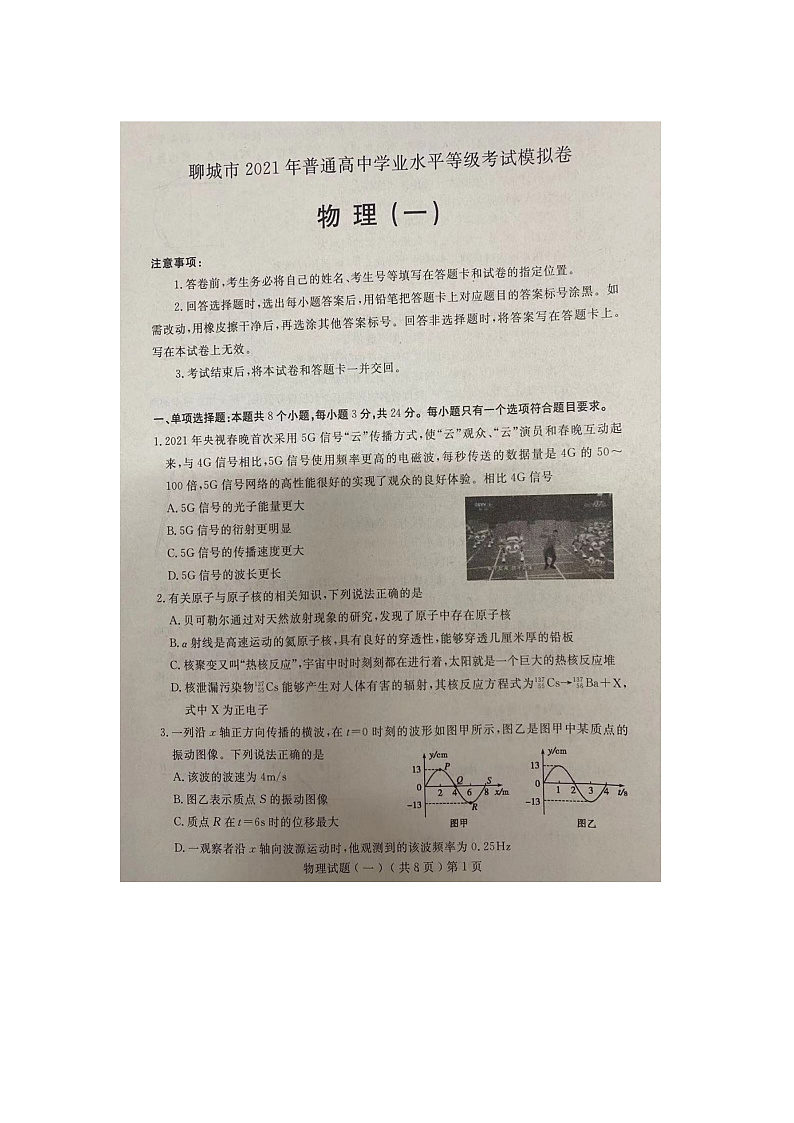 聊城市 2021 年普通高中学业水平等级考试模拟卷
物 理 (一)
注意事项:
1.答卷前,考生务必将自己的姓名、考生号等填写在答题卡和试卷的指定位置。
2.回答选择题时,选出每小题答案后,用铅笔把答题卡上对应题目的答案标号涂黑。如
需改动,用橡皮擦干净后,再选涂其他答案标号。回答非选择题时,将答案写在答题卡上。
写在本试卷上无效。
3.考试结束后,将本试卷和答题卡一并交回。
一、单项选择题:本题共 8 个小题,每小题 3 分,共 24 分。每小题只有一个选项符合题目要求。
1.2021 年央视春晚首次采用 5G 信号“云”传播方式,使“云”观众、“云”演员和春晚互动起
来,与 4G 信号相比,5G 信号使用频率更高的电磁波,每秒传送的数据量是 4G 的 50～
100 倍,5G 信号网络的高性能很好的实现了观众的良好体验。相比 4G 信号
A.5G 信号的光子能量更大
B.5G 信号的衍射更明显
C.5G 信号的传播速度更大
D.5G 信号的波长更长
2.有关原子与原子核的相关知识,下列说法正确的是
A.贝可勒尔通过对天然放射现象的研究,发现了原子中存在原子核
B.α 射线是高速运动的氦原子核,具有良好的穿透性,能够穿透几厘米厚的铅板
C.核聚变又叫“热核反应”,宇宙中时时刻刻都在进行着,太阳就是一个巨大的热核反应堆
D.核泄漏污染物¹³⁷₅₅Cs 能够产生对人体有害的辐射,其核反应方程式为¹³⁷₅₅Cs→¹³⁷₅₆Ba+X,
式中 X 为正电子
3.一列沿 x 轴正方向传播的横波,在 t=0 时刻的波形如图甲所示,图乙是图甲中某质点的
振动图像。下列说法正确的是
A.该波的波速为 4m/s
B.图乙表示质点 S 的振动图像
C.质点 R 在 t=6s 时的位移最大
D.一观察者沿 x 轴向波源运动时,他观测到的该波频率为 0.25Hz
y/cm
13
0
-13
P
Q
R
S
2 4 6 8 x/m
图甲
y/cm
13
0
-13
1 2 3 4 t/s
图乙
物理试题(一)(共 8 页)第 1 页